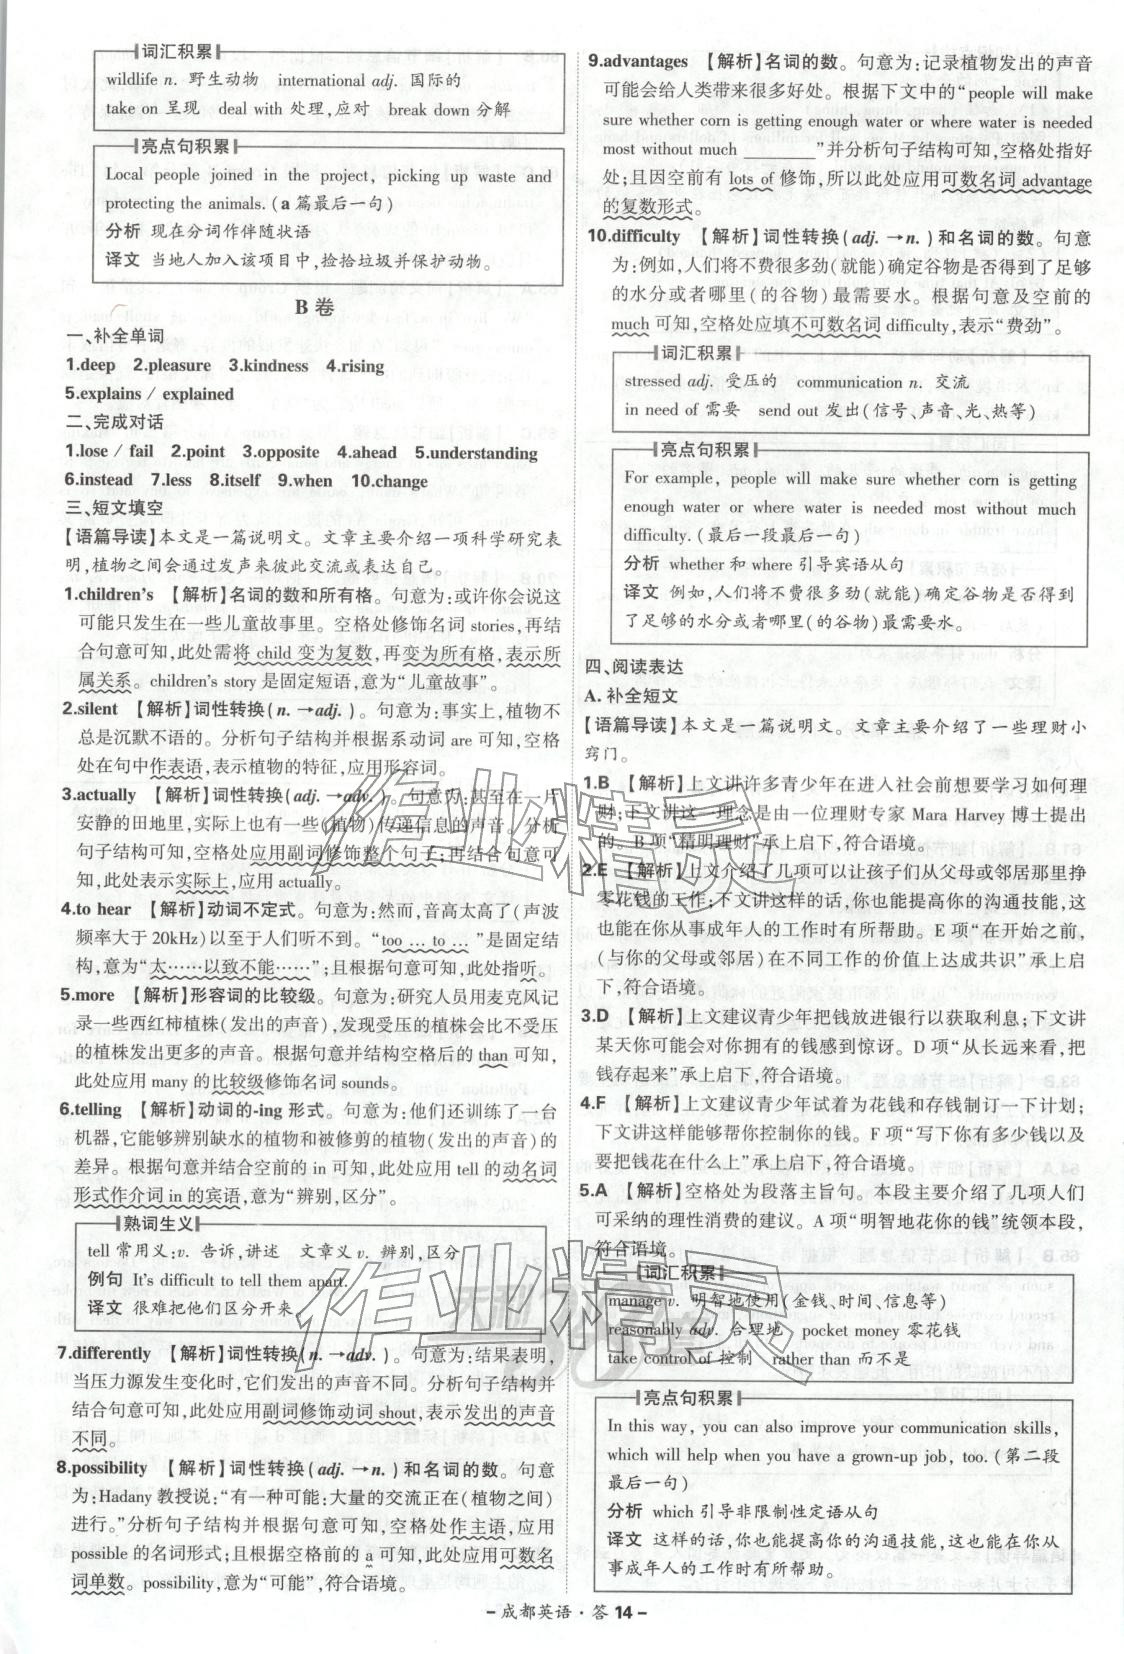 词汇积累
wildlife n. 野生动物 international adj. 国际的
take on 呈现 deal with 处理,应对 break down 分解
亮点句积累
Local people joined in the project, picking up waste and
protecting the animals. (a 篇最后一句)
分析 现在分词作伴随状语
译文 当地人加入该项目中,捡拾垃圾并保护动物。
B 卷
一、补全单词
1.deep 2.pleasure 3.kindness 4.rising
5.explains / explained
二、完成对话
1.lose / fail 2.point 3.opposite 4.ahead 5.understanding
6.instead 7.less 8.itself 9.when 10.change
三、短文填空
【语篇导读】本文是一篇说明文。文章主要介绍一项科学研究表
明,植物之间会通过发声来彼此交流或表达自己。
1.children's 【解析】名词的数和所有格。句意为:或许你会说这
可能只发生在一些儿童故事里。空格处修饰名词 stories,再结
合句意可知,此处需将 child 变为复数,再变为所有格,表示所
属关系。children's story 是固定短语,意为“儿童故事”。
2.silent 【解析】词性转换(n. →adj. )。句意为:事实上,植物不
总是沉默不语的。分析句子结构并根据系动词 are 可知,空格
处在句中作表语,表示植物的特征,应用形容词。
3.actually 【解析】词性转换(adj. →adv. )。句意为:甚至在一片
安静的田地里,实际上也有一些(植物)传递信息的声音。分析
句子结构可知,空格处应用副词修饰整个句子;再结合句意可
知,此处表示实际上,应用 actually。
4.to hear 【解析】动词不定式。句意为:然而,音高太高了(声波
频率大于 20kHz)以至于人们听不到。“too … to … ”是固定结
构,意为“太……以致不能……”;且根据句意可知,此处指听。
5.more 【解析】形容词的比较级。句意为:研究人员用麦克风记
录一些西红柿植株(发出的声音),发现受压的植株会比不受压
的植株发出更多的声音。根据句意并结构空格后的 than 可知,
此处应用 many 的比较级修饰名词 sounds。
6.telling 【解析】动词的-ing 形式。句意为:他们还训练了一台
机器,它能够辨别缺水的植物和被修剪的植物(发出的声音)的
差异。根据句意并结合空前的 in 可知,此处应用 tell 的动名词
形式作介词 in 的宾语,意为“辨别,区分”。
熟词生义
tell 常用义:v. 告诉,讲述 文章义 v. 辨别,区分
例句 It's difficult to tell them apart.
译文 很难把他们区分开来。
7.differently 【解析】词性转换(n. →adv. )。句意为:结果表明,
当压力源发生变化时,它们发出的声音不同。分析句子结构并
结合句意可知,此处应用副词修饰动词 shout,表示发出的声音
不同。
8.possibility 【解析】词性转换(adj. →n. )和名词的数。句意
为:Hadany 教授说:“有一种可能:大量的交流正在(植物之间)
进行。”分析句子结构并根据句意可知,空格处作主语,应用
possible 的名词形式;且根据空格前的 a 可知,此处应用可数名
词单数。possibility,意为“可能”,符合语境。
9.advantages 【解析】名词的数。句意为:记录植物发出的声音
可能会给人类带来很多好处。根据下文中的“people will make
sure whether corn is getting enough water or where water is needed
most without much ________ ”并分析句子结构可知,空格处指好
处;且因空前有 lots of 修饰,所以此处应用可数名词 advantage
的复数形式。
10.difficulty 【解析】词性转换(adj. →n. )和名词的数。句意
为:例如,人们将不费很多劲(就能)确定谷物是否得到了足够
的水分或者哪里(的谷物)最需要水。根据句意及空前的
much 可知,空格处应填不可数名词 difficulty,表示“费劲”。
词汇积累
stressed adj. 受压的 communication n. 交流
in need of 需要 send out 发出(信号、声音、光、热等)
亮点句积累
For example, people will make sure whether corn is getting
enough water or where water is needed most without much
difficulty. (最后一段最后一句)
分析 whether 和 where 引导宾语从句
译文 例如,人们将不费很多劲(就能)确定谷物是否得到
了足够的水分或者哪里(的谷物)最需要水。
四、阅读表达
A. 补全短文
【语篇导读】本文是一篇说明文。文章主要介绍了一些理财小
窍门。
1.B 【解析】上文讲许多青少年在进入社会前想要学习如何理
财;下文讲这一理念是由一位理财专家 Mara Harvey 博士提出
的。B 项“精明理财”承上启下,符合语境。
2.E 【解析】上文介绍了几项可以让孩子们从父母或邻居那里挣
零花钱的工作;下文讲这样的话,你也能提高你的沟通技能,这
也能在你从事成年人的工作时有所帮助。E 项“在开始之前,
(与你的父母或邻居)在不同工作的价值上达成共识”承上启
下,符合语境。
3.D 【解析】上文建议青少年把钱放进银行以获取利息;下文讲
某天你可能会对你拥有的钱感到惊讶。D 项“从长远来看,把
钱存起来”承上启下,符合语境。
4.F 【解析】上文建议青少年试着为花钱和存钱制订一下计划;
下文讲这样能够帮你控制你的钱。F 项“写下你有多少钱以及
要把钱花在什么上”承上启下,符合语境。
5.A 【解析】空格处为段落主旨句。本段主要介绍了几项人们
可采纳的理性消费的建议。A 项“明智地花你的钱”统领本段,
符合语境。
词汇积累
manage v. 明智地使用(金钱、时间、信息等)
reasonably adv. 合理地 pocket money 零花钱
take control of 控制 rather than 而不是
亮点句积累
In this way, you can also improve your communication skills,
which will help when you have a grown-up job, too. (第二段
最后一句)
分析 which 引导非限制性定语从句
译文 这样的话,你也能提高你的沟通技能,这也能在你从
事成年人的工作时有所帮助。
作业精灵
作业精灵
– 成都英语 · 答 14 –